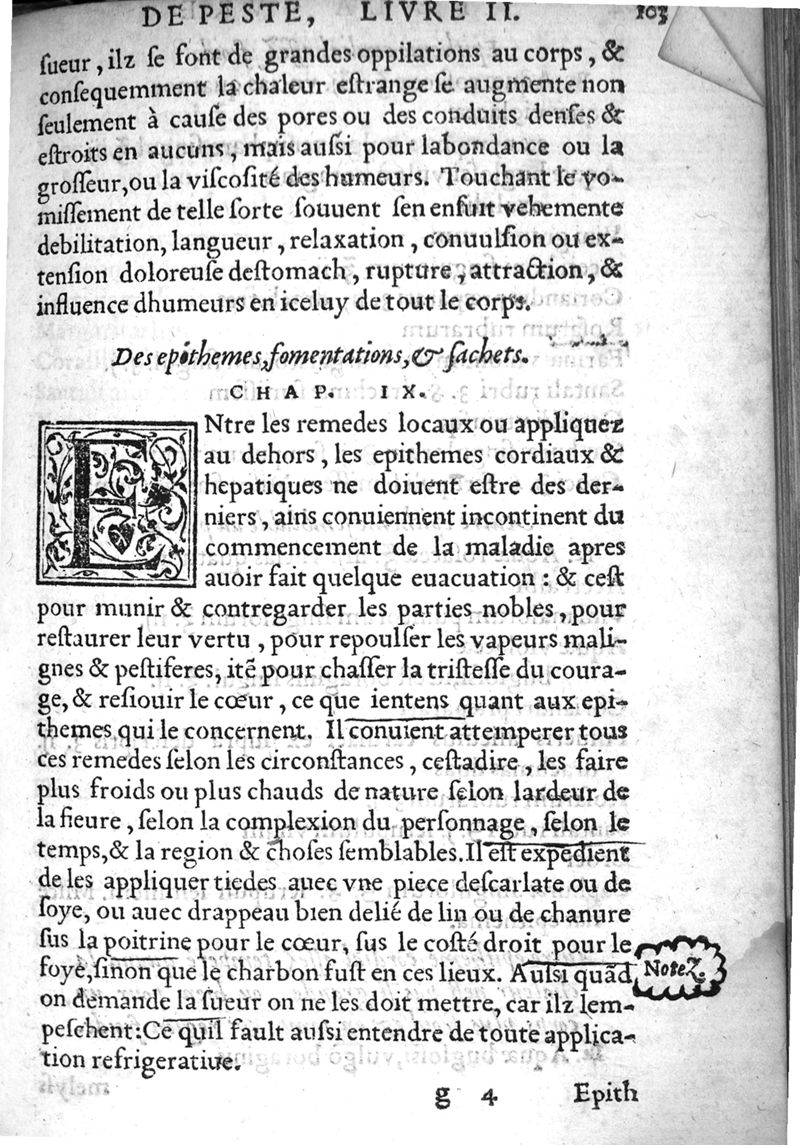 DE PESTE, LIVRE II. 103
ſueur, ilz ſe font de grandes oppilations au corps, &
conſequemment la chaleur eſtrange ſe augmente non
ſeulement à cauſe des pores ou des conduits denſes &
eſtroits en aucuns, mais auſsi pour labondance ou la
groſſeur, ou la viſcoſité des humeurs. Touchant le vo-
miſſement de telle ſorte ſouuent ſen enſuit vehemente
debilitation, langueur, relaxation, conuulſion ou ex-
tenſion doloreuſe deſtomach, rupture, attraction, &
influence dhumeurs en iceluy de tout le corps.
Des epithemes, fomentations, & ſachets.
CHAP. IX.
ENtre les remedes locaux ou appliquez
au dehors, les epithemes cordiaux &
hepatiques ne doiuent eſtre des der-
niers, ains conuiennent incontinent du
commencement de la maladie apres
auoir fait quelque euacuation : & ceſt
pour munir & contregarder les parties nobles, pour
reſtaurer leur vertu, pour repoulſer les vapeurs mali-
gnes & peſtiferes, itē pour chaſſer la triſteſſe du coura-
ge, & reſiouir le cœur, ce que ientens quant aux epi-
themes qui le concernent. Il conuient attemperer tous
ces remedes ſelon les circonſtances, ceſtadire, les faire
plus froids ou plus chauds de nature ſelon lardeur de
la fieure, ſelon la complexion du perſonnage, ſelon le
temps, & la region & choſes ſemblables. Il eſt expedient
de les appliquer tiedes auec vne piece deſcarlate ou de
ſoye, ou auec drappeau bien delié de lin ou de chanure
ſus la poitrine pour le cœur, ſus le coſté droit pour le
foye, ſinon que le charbon fuſt en ces lieux. Auſsi quād
Notez.
on demande la ſueur on ne les doit mettre, car ilz lem-
peſchent: Ce quil fault auſsi entendre de toute applica-
tion refrigeratiue.
g 4 Epith